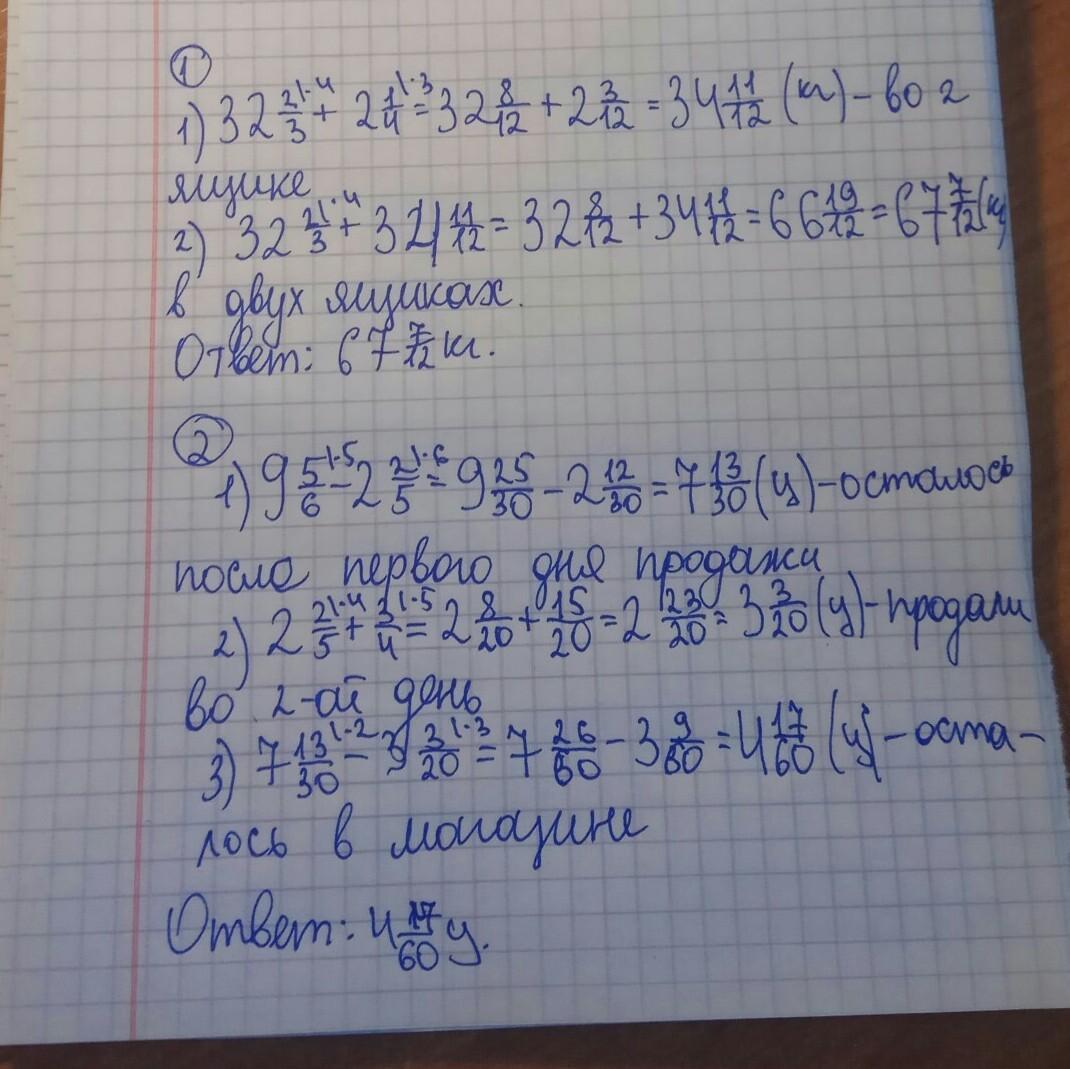 ①
1) 32 2/3 |·4 + 2 1/4 |·3 = 32 8/12 + 2 3/12 = 34 11/12 (кг) - во 2
ящике
2) 32 2/3 |·4 + 34 11/12 = 32 8/12 + 34 11/12 = 66 19/12 = 67 7/12 (кг)
в двух ящиках.
Ответ: 67 7/12 кг.
②
1) 9 5/6 |·5 - 2 2/5 |·6 = 9 25/30 - 2 12/30 = 7 13/30 (ц) - осталось
после первого дня продажи
2) 2 2/5 |·4 + 3/4 |·5 = 2 8/20 + 15/20 = 2 23/20 = 3 3/20 (ц) - продали
во 2-ай день
3) 7 13/30 |·2 - 3 3/20 |·3 = 7 26/60 - 3 9/60 = 4 17/60 (ц) - оста-
лось в магазине
Ответ: 4 17/60 ц.